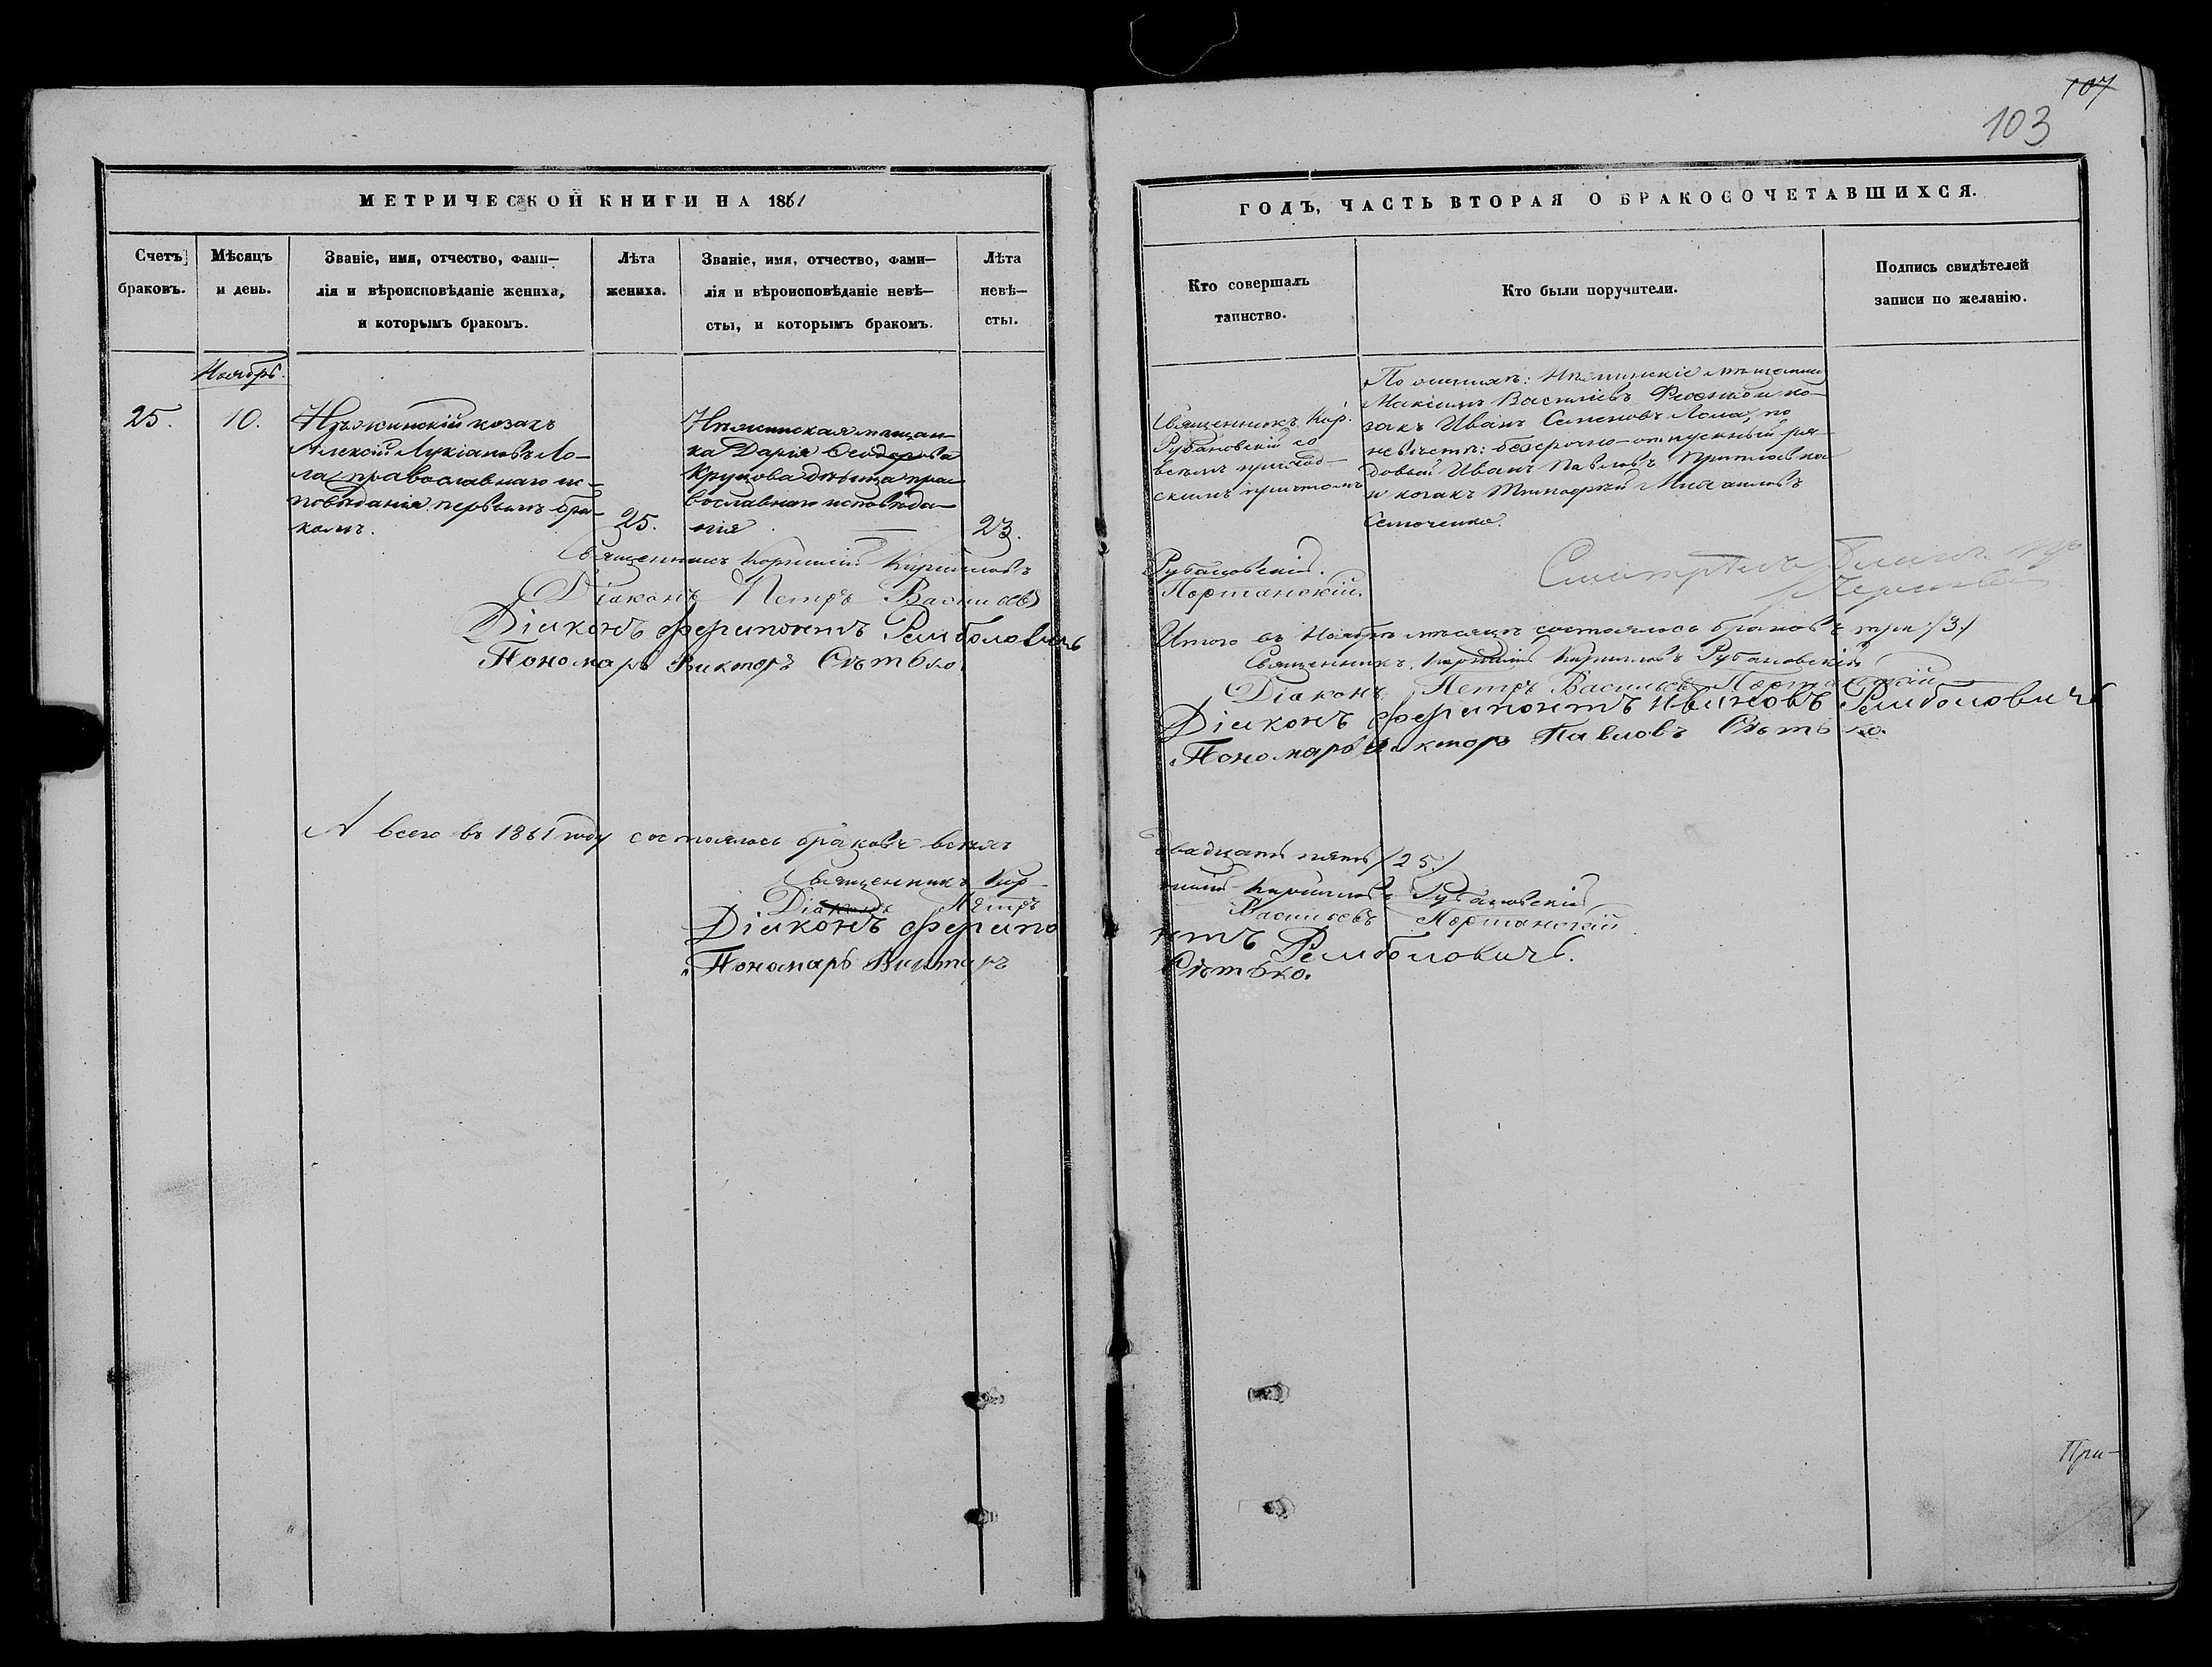 107
103
МЕТРИЧЕСКОЙ КНИГИ НА 1861
ГОДЪ, ЧАСТЬ ВТОРАЯ О БРАКОСОЧЕТАВШИХСЯ.
Счетъ
браковъ.
Мѣсяцъ
и день.
Званіе, имя, отчество, фами-
лія и вѣроисповѣданіе жениха,
и которымъ бракомъ.
Лѣта
жениха.
Званіе, имя, отчество, фами-
лія и вѣроисповѣданіе невѣ-
сты, и которымъ бракомъ.
Лѣта
невѣ-
сты.
Кто совершалъ
таинство.
Кто были поручители.
Подпись свидѣтелей
записи по желанію.
Ноябрь.
25.
10.
Нѣжинскій козакъ
Алексій Лукіановъ Ло-
ма, православнаго ис-
повѣданія первымъ бра-
комъ.
25.
Нѣжинская мѣщан-
ка Дарія Ѳеодорова
Круцова дѣвица пра-
вославнаго исповѣда-
нія
23.
Священникъ Кор.
Рубановскій со
всѣмъ приход-
скимъ причтомъ
По женихѣ: Нѣжинскіе мѣщанинъ
Максимъ Васильевъ и ко-
закъ Иванъ Семеновъ Лома, по
невѣстѣ: безсрочно-отпускный ря-
довый Иванъ Павловъ
и козакъ Тимофей Михаиловъ
Семоченко.
Священникъ Корнилій Кирилловъ
Діаконъ Петръ Васильевъ
Діаконъ Ферапонтъ Рклиболовичъ
Пономарь Викторъ Сѣтько.
Рубановскій.
Портанскій.
Смотрѣлъ
Итого въ Ноябрѣ мѣсяцѣ состоялось браковъ три /3/
Священникъ Корнилій Кирилловъ Рубановскій
Діаконъ Петръ Васильевъ Портанскій
Діаконъ Ферапонтъ Ивановъ
Пономарь Викторъ Павловъ Сѣтько.
А всего въ 1861 году состоялось браковъ всѣхъ
двадцать пять /25/
Священникъ Кор-
нилій Кирилловъ Рубановскій
Діаконъ Петръ
Васильевъ Портанскій
Діаконъ Ферапо
нтъ
Пономарь Викторъ
Сѣтько.
При-